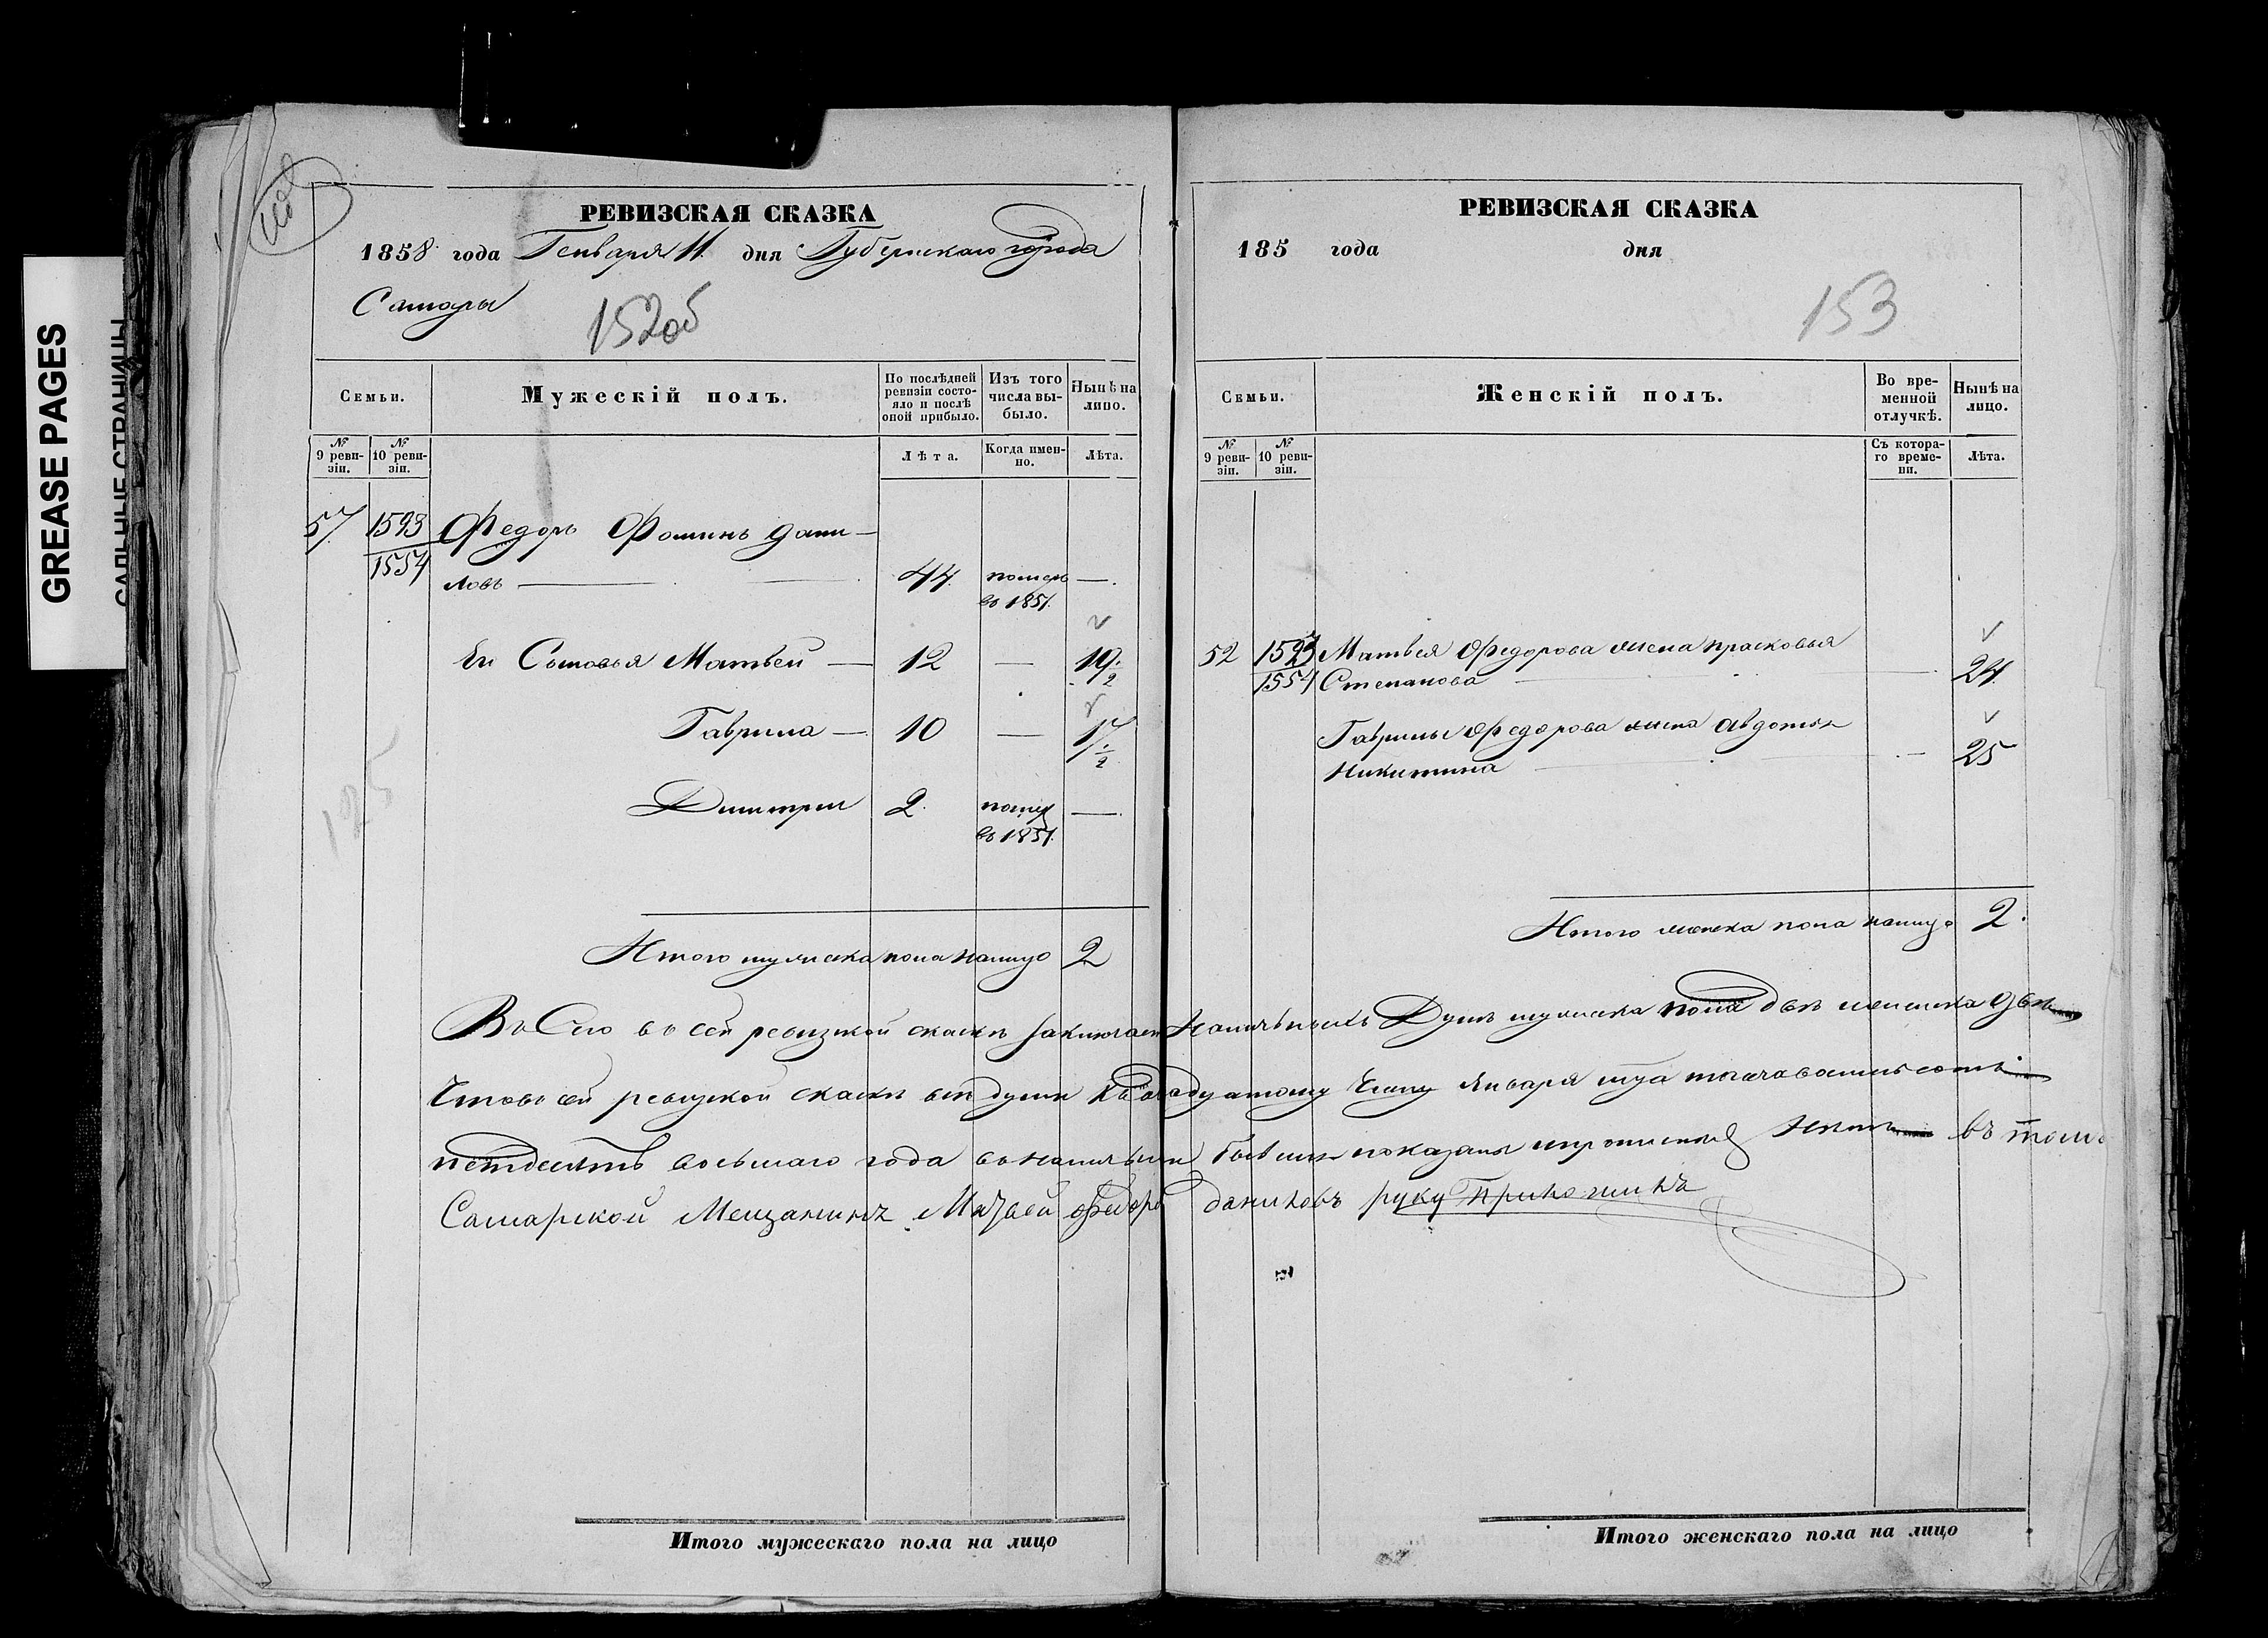 GREASE PAGES
САЛЬНЫЕ СТРАНИЦЫ
РЕВИЗСКАЯ СКАЗКА
1858 года Генваря 11. дня Губернскаго города
Самары
152об
Семьи.
Мужескій полъ.
По послѣдней ревизіи состояло и послѣ оной прибыло.
Изъ того числа выбыло.
Нынѣ на лицо.
№ 9 ревизіи.
№ 10 ревизіи.
Лѣта.
Когда именно.
Лѣта.
57 1593 Федоръ Фоминъ Дани-
1554
ловъ 44 померъ
въ 1851.
Ег Сыновья Матвей 12 — 19 1/2
Гаврила 10 — 17 1/2
Димитрій 2. помер —
въ 1851.
Итого мужеска пола налицо 2
РЕВИЗСКАЯ СКАЗКА
185 года дня
153
Семьи.
Женскій полъ.
Во временной отлучкѣ.
Нынѣ на лицо.
№ 9 ревизіи.
№ 10 ревизіи.
Съ котораго времени.
Лѣта.
52 1593 Матвея Федорова жена Прасковья
1554 Степанова — 24
Гаврилы Федорова жена Авдотья
Никитина — 25
Итого женска пола налицо 2.
Всего въ сей ревизкой сказке заключает наличныхъ Душъ мужеска пола две женска две
Что въ сей ревизкой сказке все души Января тысяча восемьсотъ
петдесятъ восьмаго года въ наличныи бывшия показаны нетъ въ томъ
Самарской Мещанинъ Матвей федоро даниловъ руку приложилъ
Итого мужескаго пола на лицо
Итого женскаго пола на лицо